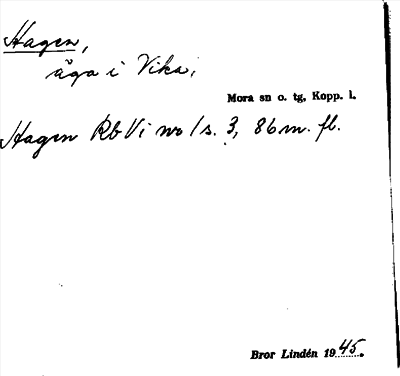 Hagen,
äga i Vika;
Mora sn o. tg, Kopp. l.
Hagen Rb Vi nr 1 s. 3, 86 m. fl.
Bror Lindén 1945.